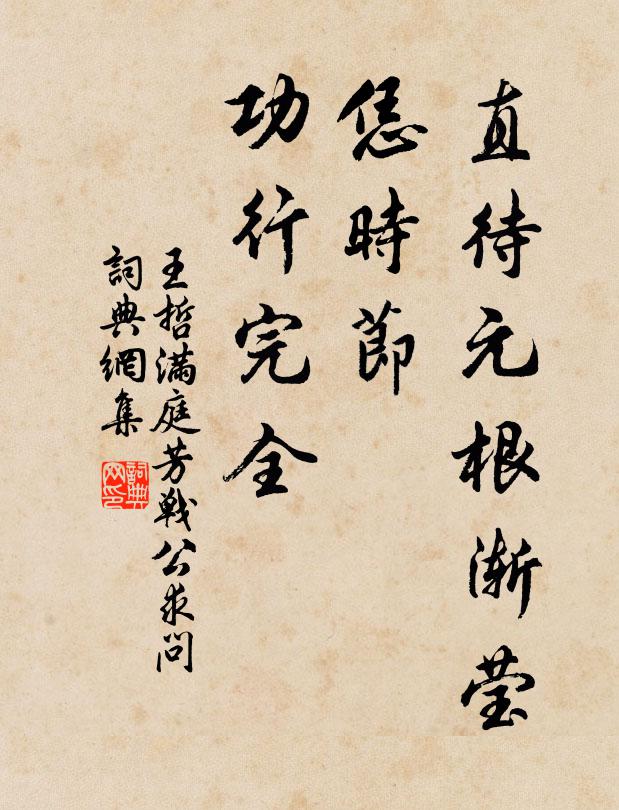 直待元根漸莹
恁時節
功行完全
王哲满庭芳戰公求問
詞典網集
詞典網印